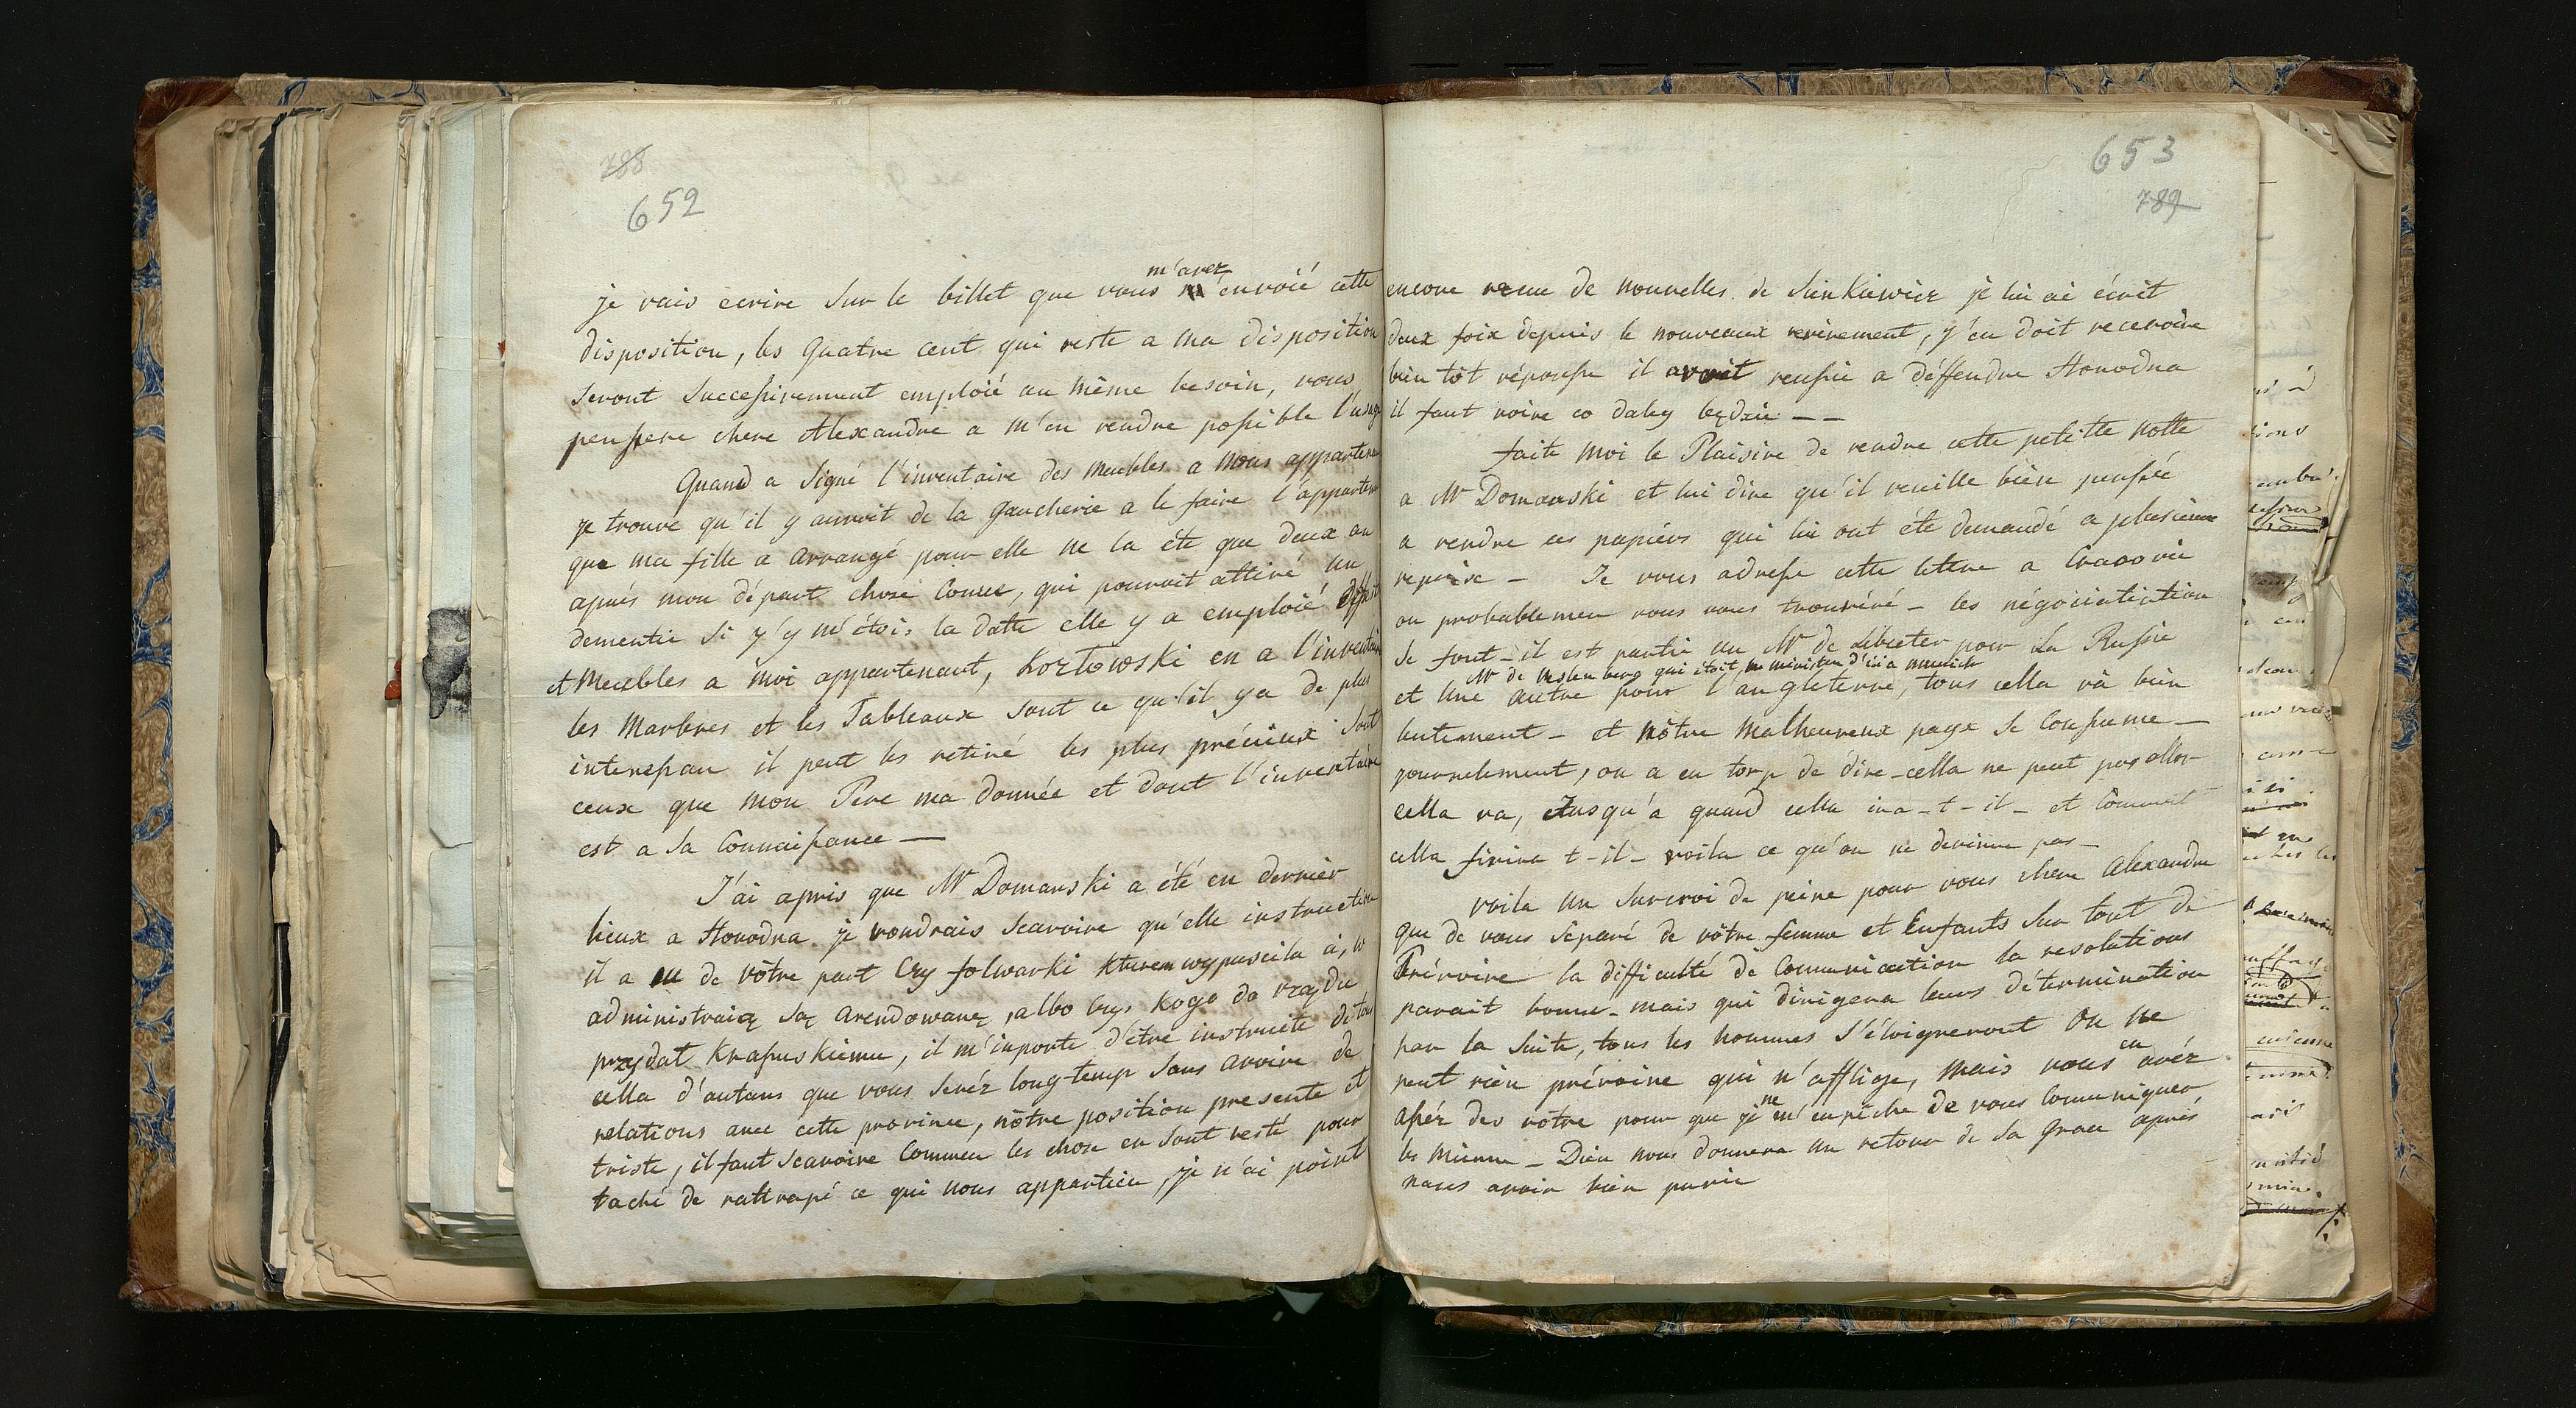 788
652
m'avez
je vais ecrire sur le billet que vous envoié cette
disposition, les quatre cent qui reste a ma disposition
seront successivement emploié au même besoin, vous
penserez chere Alexandre a m'en rendre possible l'usage
Quand a signé l'inventaire des meubles a nous apparten
je trouve qu'il y auroit de la gaucherie a le faire l'apparten
que ma fille a arrangé pour elle ne la été que deux an
aprés mon départ chose connu, qui pourroit attiré un
dementie si j'y m'étois la datte elle y a emploié
et Meubles a moi appartenant, Kozłowski en a l'inventaire
les Marbres et les Tableaux sont ce qu'il y a de plus
interessan il peut les retiré les plus précieux sont
ceux que mon Pere ma donnée et dont l'inventaire
est a sa Connaissance —
J'ai apris que Mr Domanski a été en dernier
lieux a Horodna je voudrais scavoire qu'elle instruction
il a eu de vôtre part Czy folwarki kturem wypuscila i, w
administraią są arendowane, albo czy kogo do rządu
przydał Krassuskiemu, il m'inporte d'être instruite de tou
cella d'autans que vous seréz long-temp sans avoire de
relations avec cette province, nôtre position presente et
triste, il faut scavoire Commen les chose en sont resté pour
taché de rattrapé ce qui nous appartien, je n'ai point
653
789
encore recue de nouvelles de Sinkiewicz je lui ai écrit
deux foix depuis le nouveaux revirement, j'en doit recevoire
bien tôt réponse il avoit reussie a déffendre Horodna
il faut voire co daley będzie — —
faite moi le Plaisire de rendre cette petitte notte
a Mr Domanski et lui dire qu'il veuille bien pensée
a rendre ces papiérs qui lui ont été demandé a plusieurs
reprise — Je vous adresse cette lettre a Cracovie
ou probablemen vous vous trouvéré — les négociatiation
se font — il est partie un Mr de Lebzeter pour La Russie
Mr de Weslenberg qui étoit ministre d'ici a Munich
et Une autre pour l'angleterre, tous cella và bien
lentement — et nôtre malheureux paye se Consume —
journelement, on a eu torp de dire — cella ne peut pas aller
cella va, Jusqu'a quand cella ira-t-il — et Comment
cella finira t-il — voila ce qu'on ne devinne pas —
voila un surcroi de peine pour vous chere Alexandre
que de vous séparé de vôtre femme et Enfants sur tout de
Prévoire la difficulté de Comunication la resolutions
parait bonne — mais qui dirigera leurs détermination
par la suite, tous les hommes s'éloigneront On ne
peut rien prévoire qui n'afflige, mais vous en avéz
assez des vôtre pour que je ne m'enpéche de vous Comuniquer
les mienne — Dieu nous donnera un retour de sa Grace aprés
nous avoir bien punie